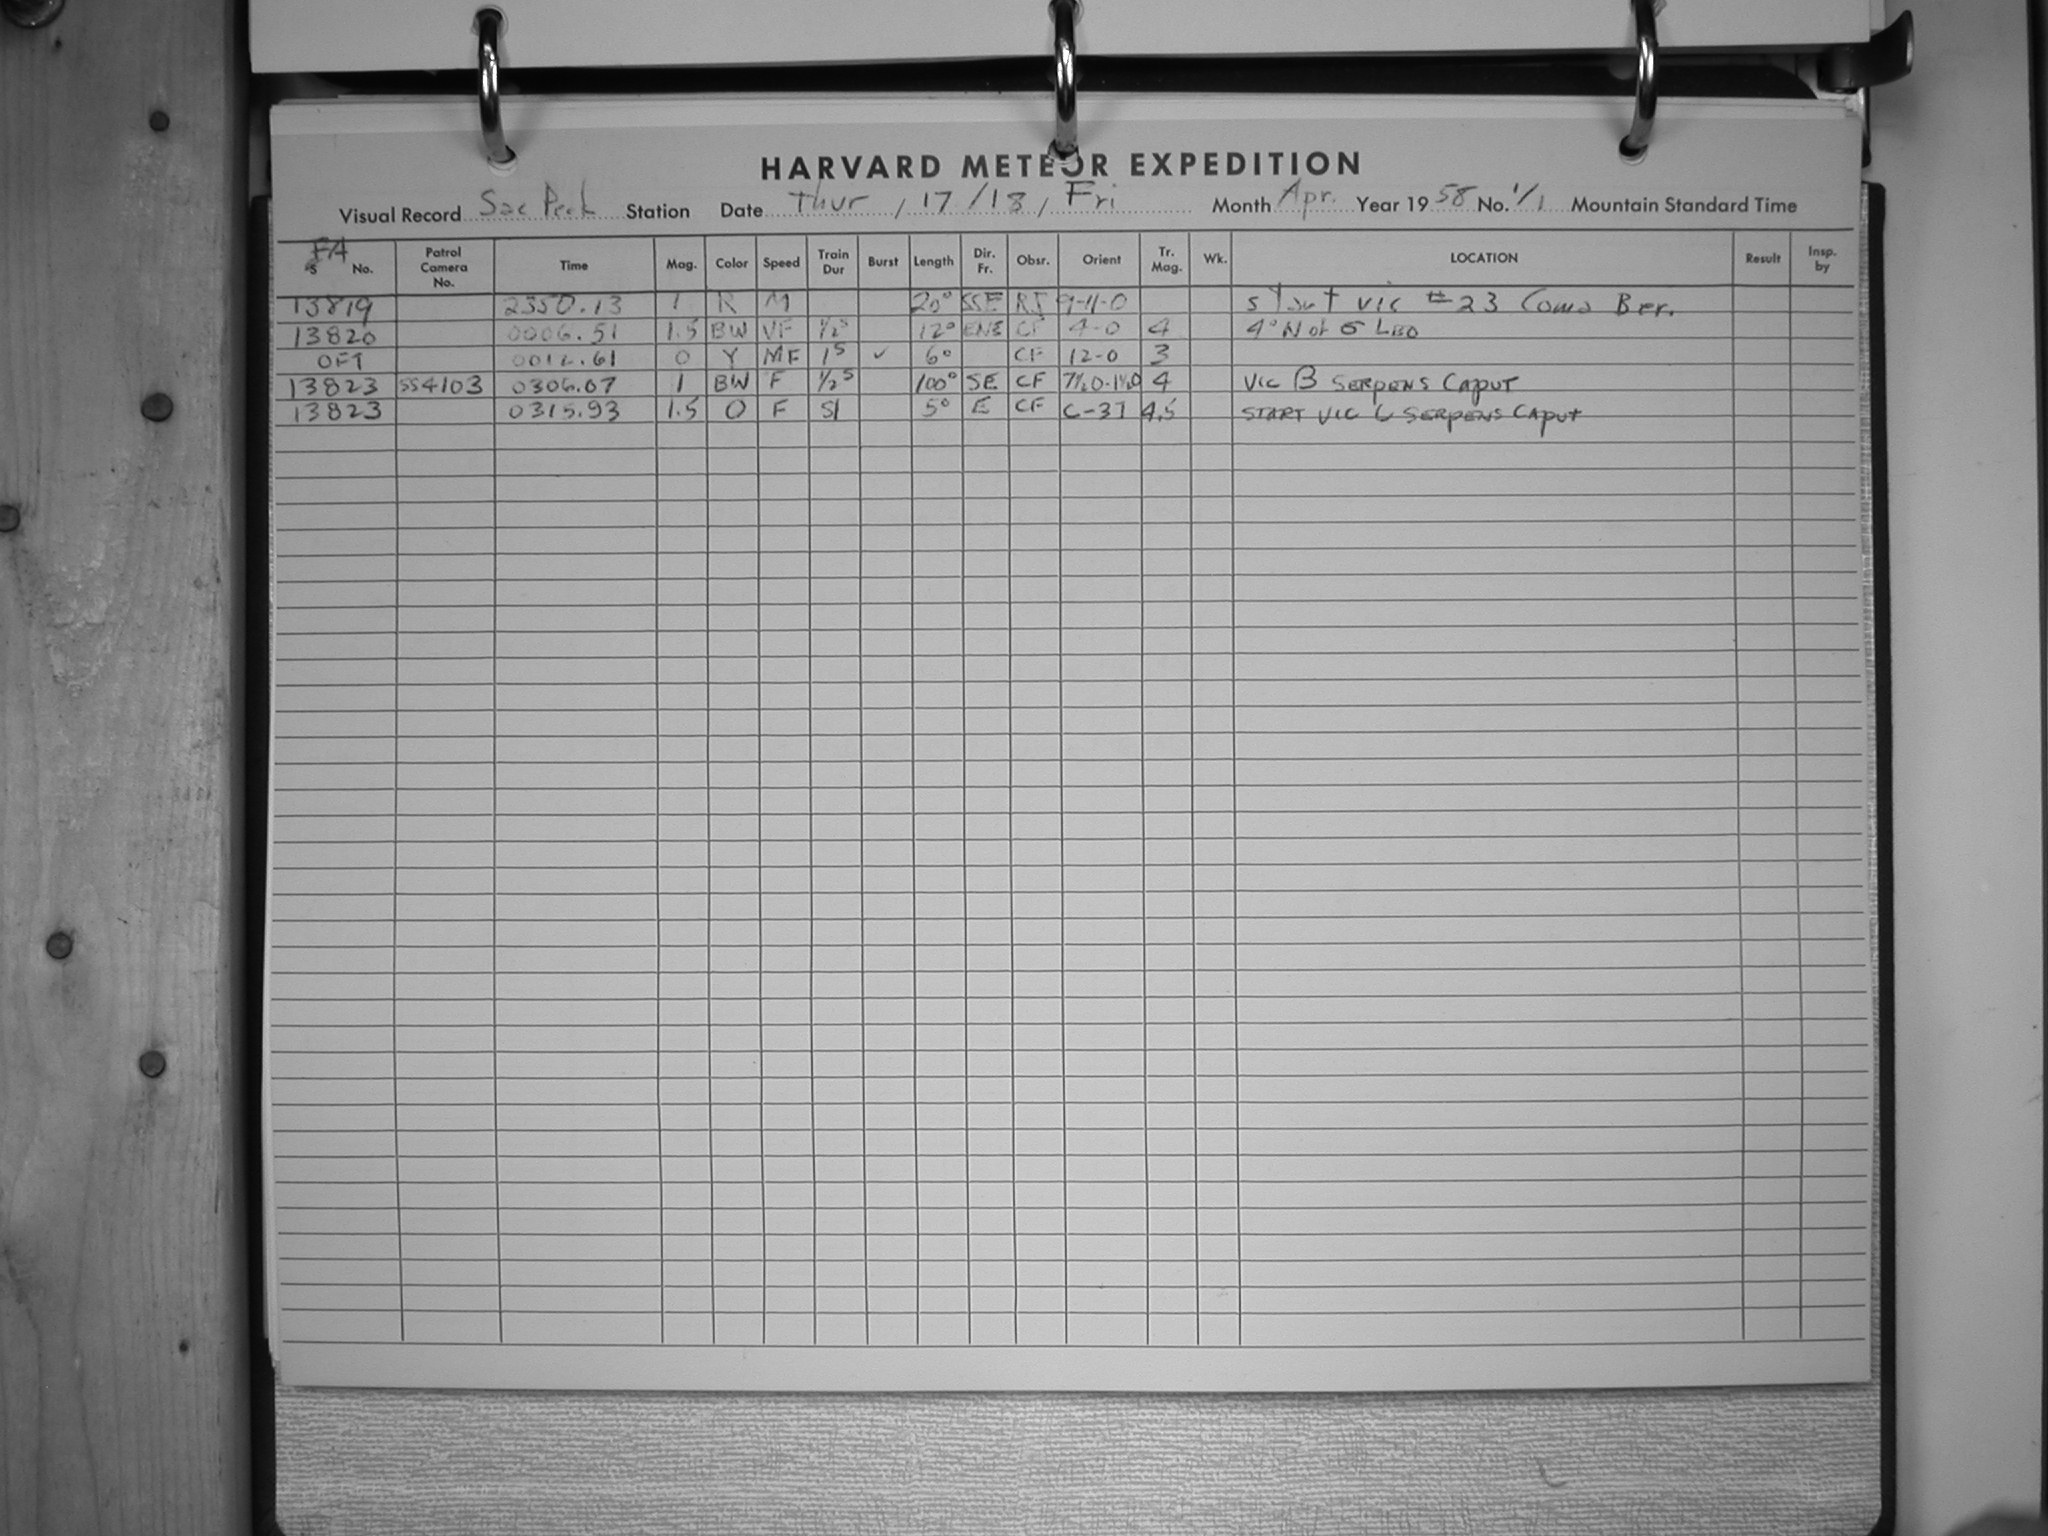 HARVARD METEOR EXPEDITION
Visual Record Sac Peak Station Date Thur, 17/18, Fri Month Apr. Year 19 58 No. 1/1 Mountain Standard Time
FA s No. Patrol Camera No. Time Mag. Color Speed Train Dur Burst Length Dir. Fr. Obsr. Orient Tr. Mag. Wk. LOCATION Result Insp. by
13819 2350.13 1 R M 20° SSE RJ 9-11-0 vic #23 Coma Ber.
13820 0006.51 1.5 BW VF 1/2s 12° ENE CF 4-0 4 4° N of σ LEO
OFT 0012.61 0 Y MF 1s ✓ 6° CF 12-0 3
13823 SS4103 0306.07 1 BW F 1/2s 100° SE CF 4 VIC β SERPENS CAPUT
13823 0315.93 1.5 O F SI 5° E CF C-37 4.5 START VIC SERPENS CAPUT